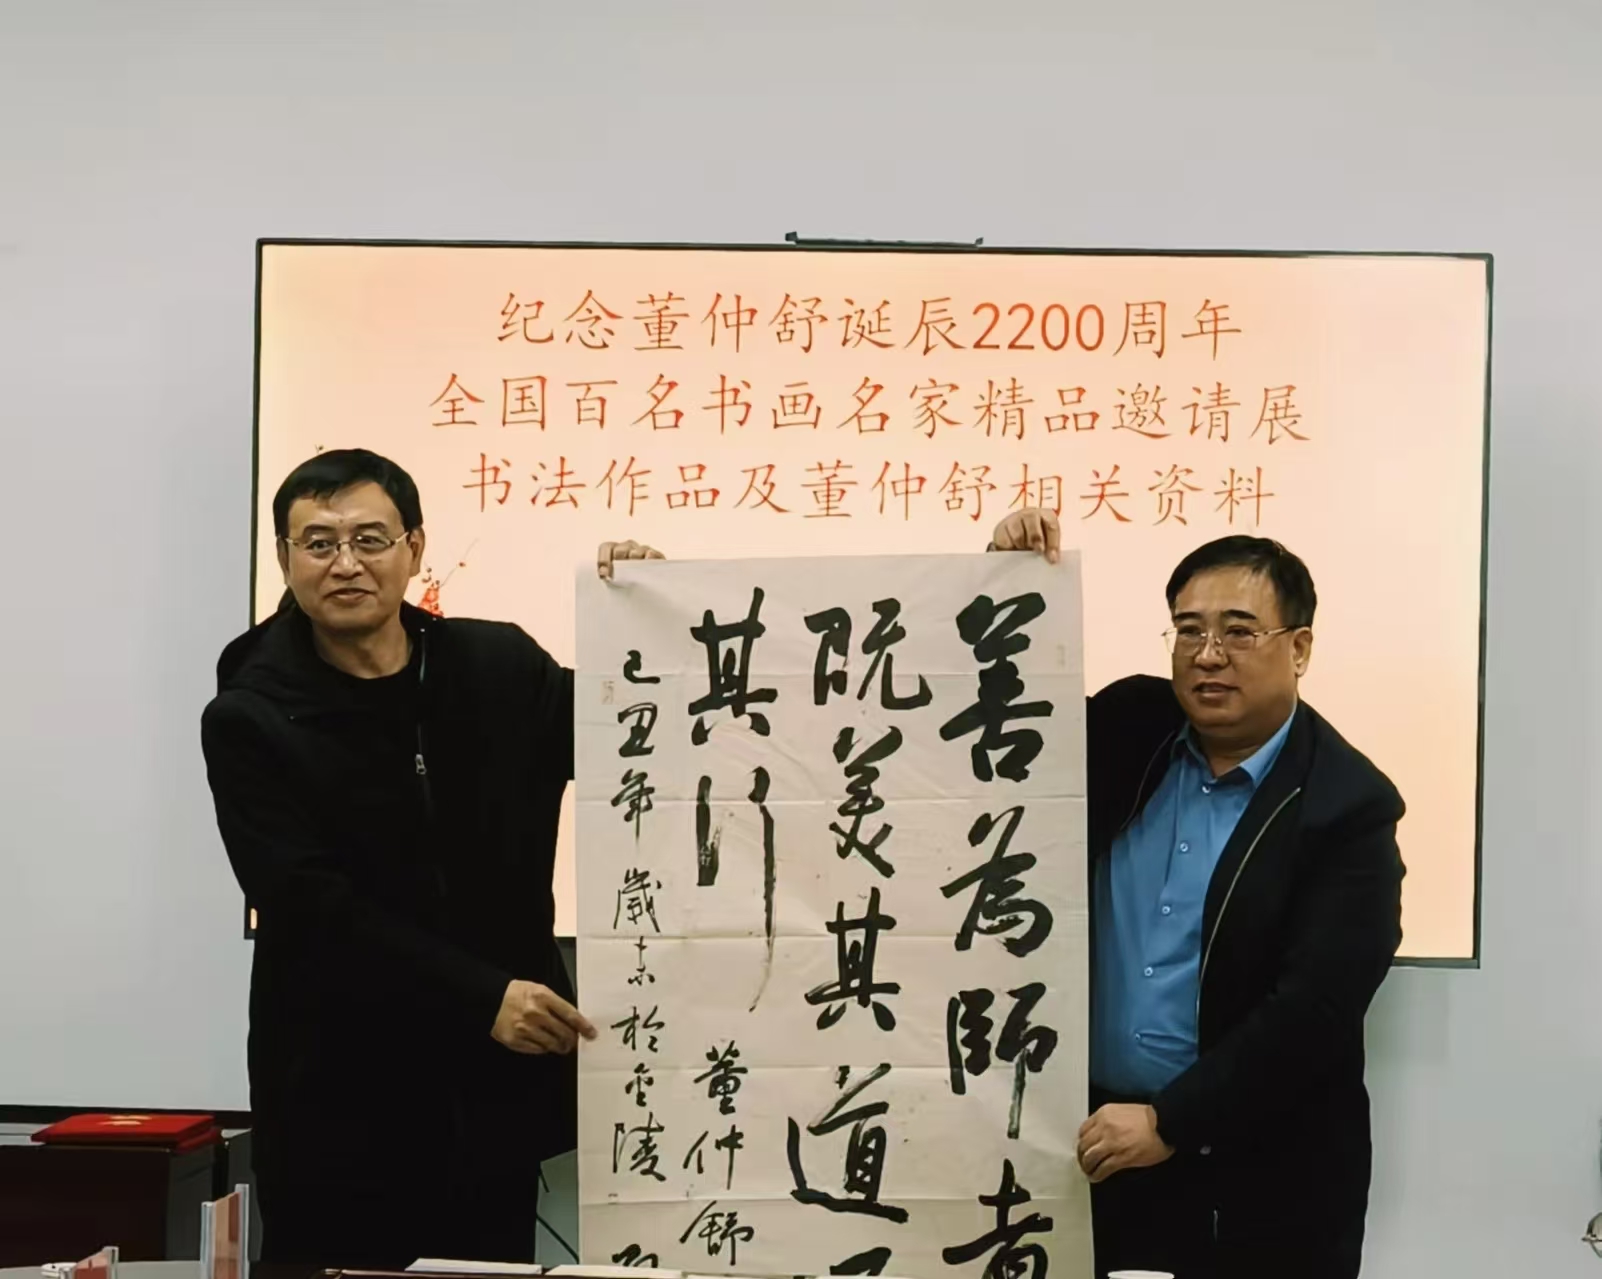 纪念董仲舒诞辰2200周年
全国百名书画名家精品邀请展
书法作品及董仲舒相关资料
善為師者
既美其道
其行 董仲舒
己丑年歲末於金陵